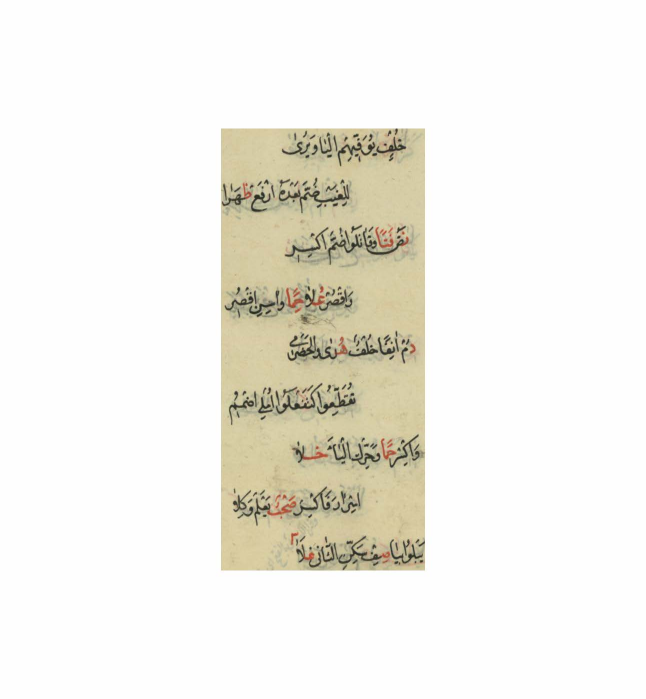 خُلْفٌ يُوَفِّيَهُم الْيَا وَيُرَىٰ
لِلْغَيْبِ ضُمَّ بَعْدَهُ ارْفَعْ ظَهَرَا
نَصَّ فَتًا وَقَاتَلُوا ضُمَّ اكْسِرِ
وَاقْصُرْ عُلًا حِمًا وَاٰسِنِ اقْصُرِ
دُمْ اٰنِفًا خُلْفٌ هُدًى وَالْحَضْرَمِي
تَقَطَّعُوا كَتَفْعَلُوا اُمْلِي اضْمُمِ
وَاكْسِرْ حِمًا وَحَرِّكِ الْيَاءَ حَلَا
اَسْرَارَ فَاكْسِرْ صَحْبُ يَعْلَمَ وَكِلَا
يَبْلُوَا بِيَا صِفْ سَكِّنِ الثَّانِي غَلَا ٣